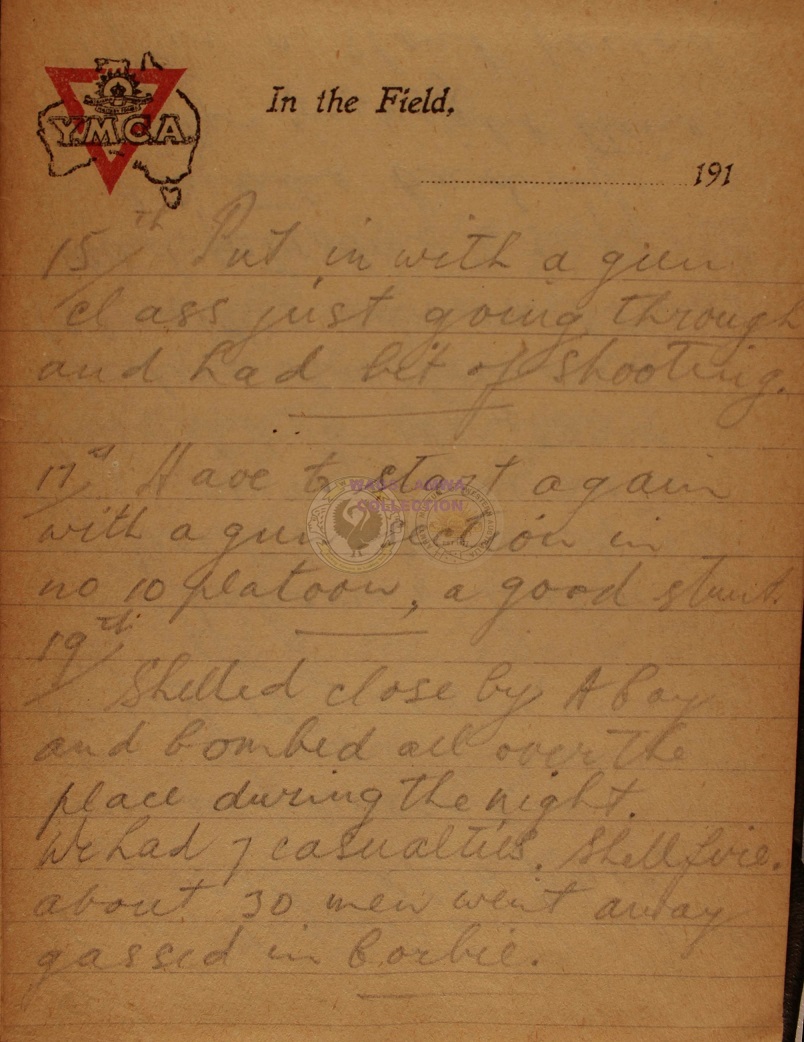 YMCA
In the Field,
191
15th Put in with a gun
class just going through
and had bit of shooting.
17th Have to start again
with a gun section in
no 10 platoon, a good stunt
19th
Shelled close by A Coy
and bombed all over the
place during the night.
We had 7 casualties. Shell fire.
about 30 men went away
gassed in Corbie.
WAGS AMMA
COLLECTION